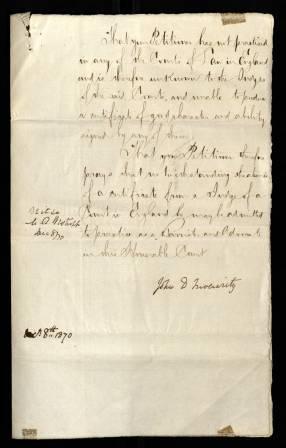 That your Petitioner has not practised
in any of the Courts of Law in England
and is therefore unknown to the Judges
of the said Courts, and unable to produce
a certificate of good character and ability
signed by any of them;
That your Petitioner therefore
prays that notwithstanding the absence
of a certificate from a Judge of a
Court in England he may be admitted
to practise as a Barrister and Advocate
in this Honorable Court
Dec 8/70
John D
Dec 8th 1870